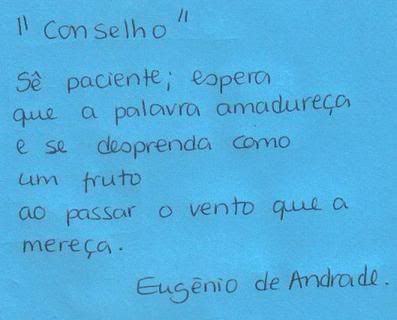 "Conselho"
Sê paciente; espera
que a palavra amadureça
e se desprenda como
um fruto
ao passar o vento que a
mereça.
Eugênio de Andrade.